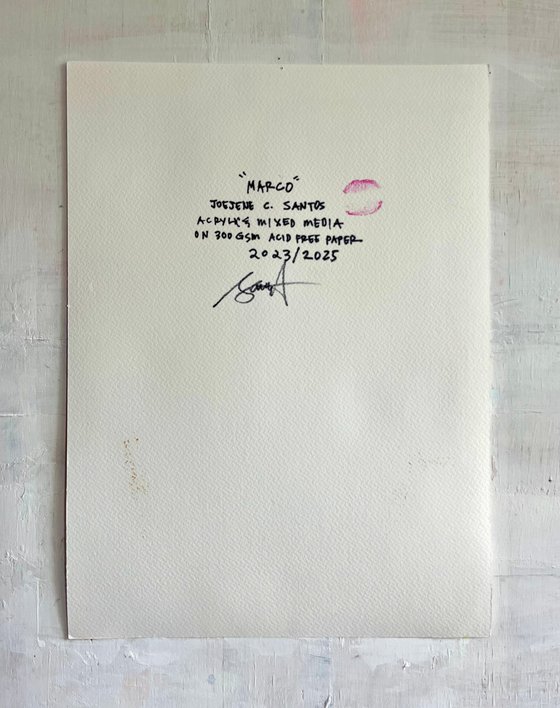 "MARCO"
JOEJENE C. SANTOS
ACRYLIC & MIXED MEDIA
ON 300GSM ACID FREE PAPER
2023/2025